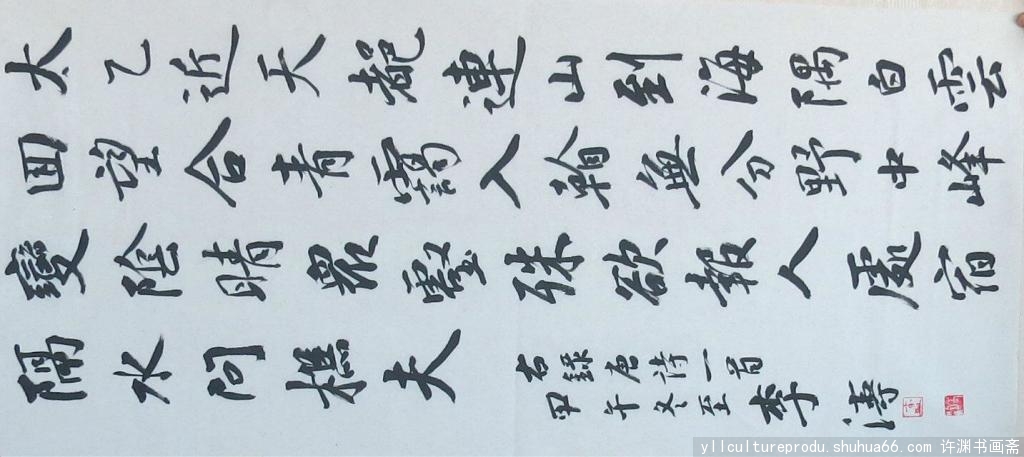 太乙近天都連山到海隅白雲
回望合青靄入看無分野中峰
變陰晴衆壑殊欲報人處宿
隔水問樵夫
右録唐詩一首
甲午冬至李
yllcultureprodu.shuhua66.com 许渊书画斋